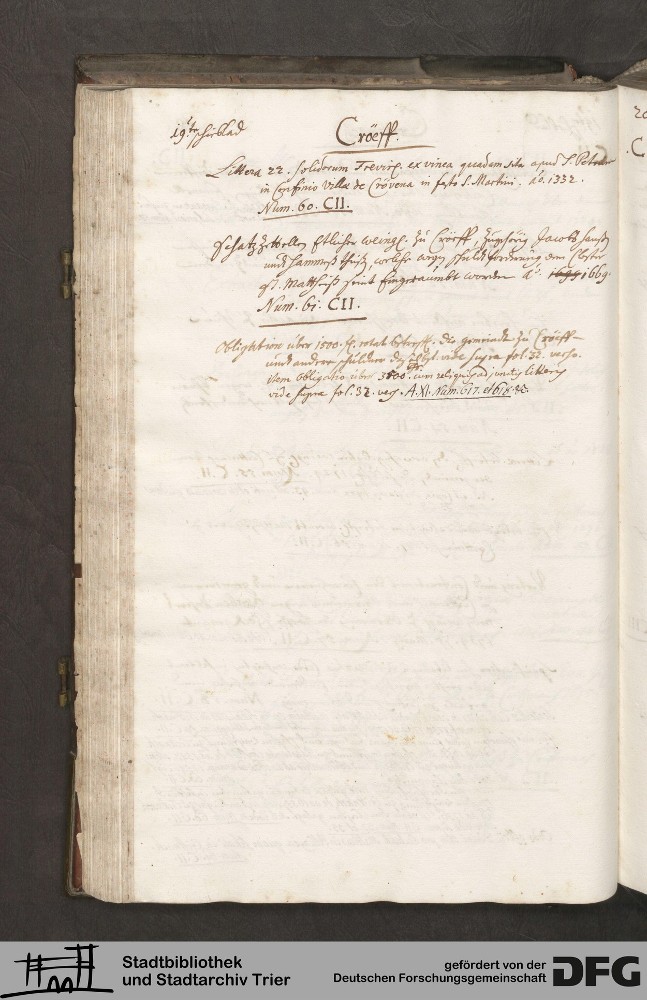 19t schieblad
Cröeff.
Littera 22. solidorum Treviren. ex vinea quadam sita apud S. Petrum
in confinio villæ de Crövena in festo S. Martini. ao. 1332.
Num. 60. CII.
Schatz Zettellen Etlicher weing. zu Cröeff, zugehörig Jacobs
und Hammeß, welche wegen schuldforderung dem Closter
St. Mattheiß seint Eingeraumbt worden ao. 1669.
Num. 61. CII.
Obligation über 1500. die gemeindt zu Cröeff
und andere schulden vide supra fol. 32. verso.
item obligatio über 3500. cum reliquis adjunctis litteris
vide supra fol. 32. vers. A. XI. Num. 617. et 618. &c.
Stadtbibliothek
und Stadtarchiv Trier
gefördert von der
Deutschen Forschungsgemeinschaft
DFG